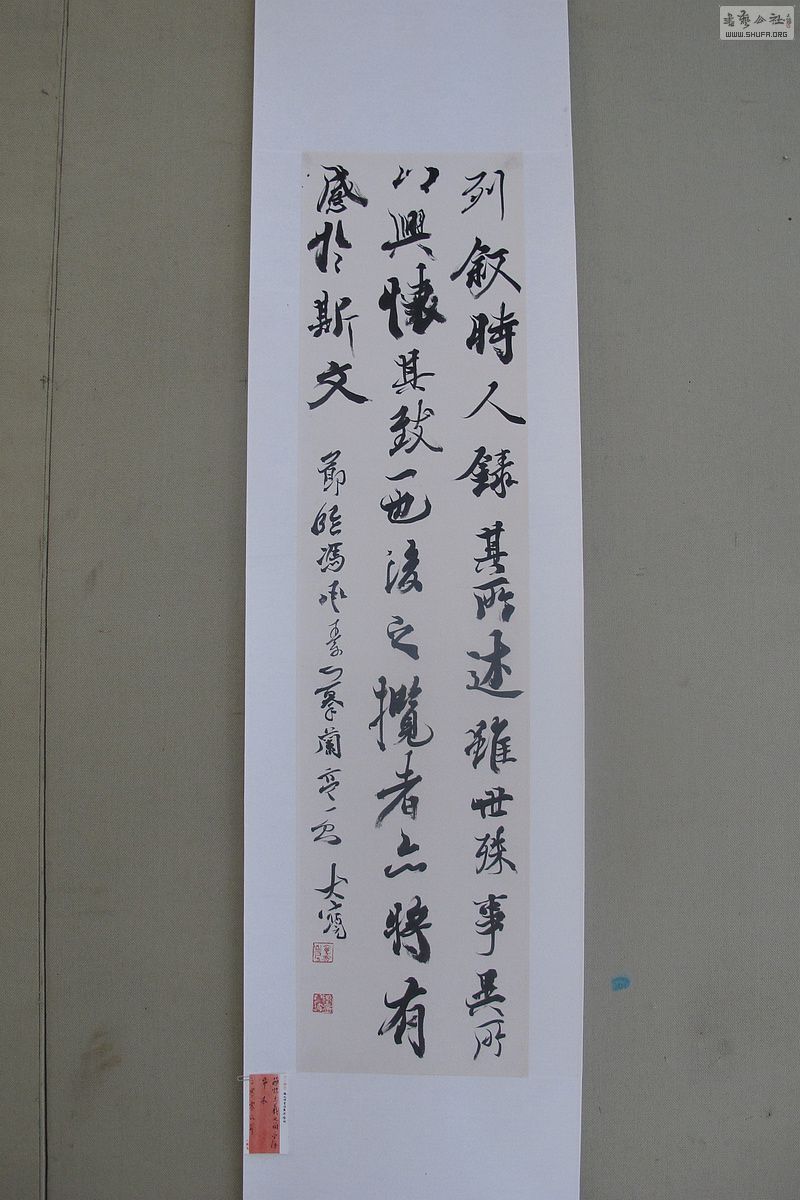 列叙時人錄其所述雖世殊事異所
以興懷其致一也後之攬者亦將有
感於斯文
節臨馮承素摹蘭亭一
書藝公社
WWW.SHUFA.ORG